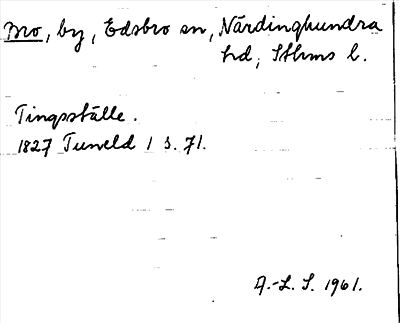 Mo, by, Edsbro sn, Närdinghundra
hd, Sthms l.
Tingsställe.
1827 Tuneld 1 s. 71.
A.-L. S. 1961.